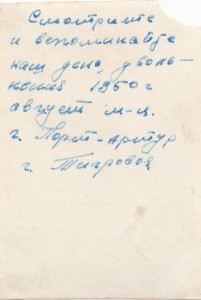 Смотрите
и вспоминайте
наш день уволь-
нения 1950 г
август м-ц.
г. Порт-Артур
г. Тигровая